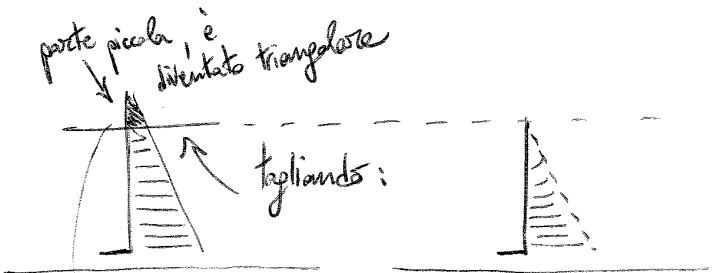 parte piccola, è
diventato triangolare
tagliando: